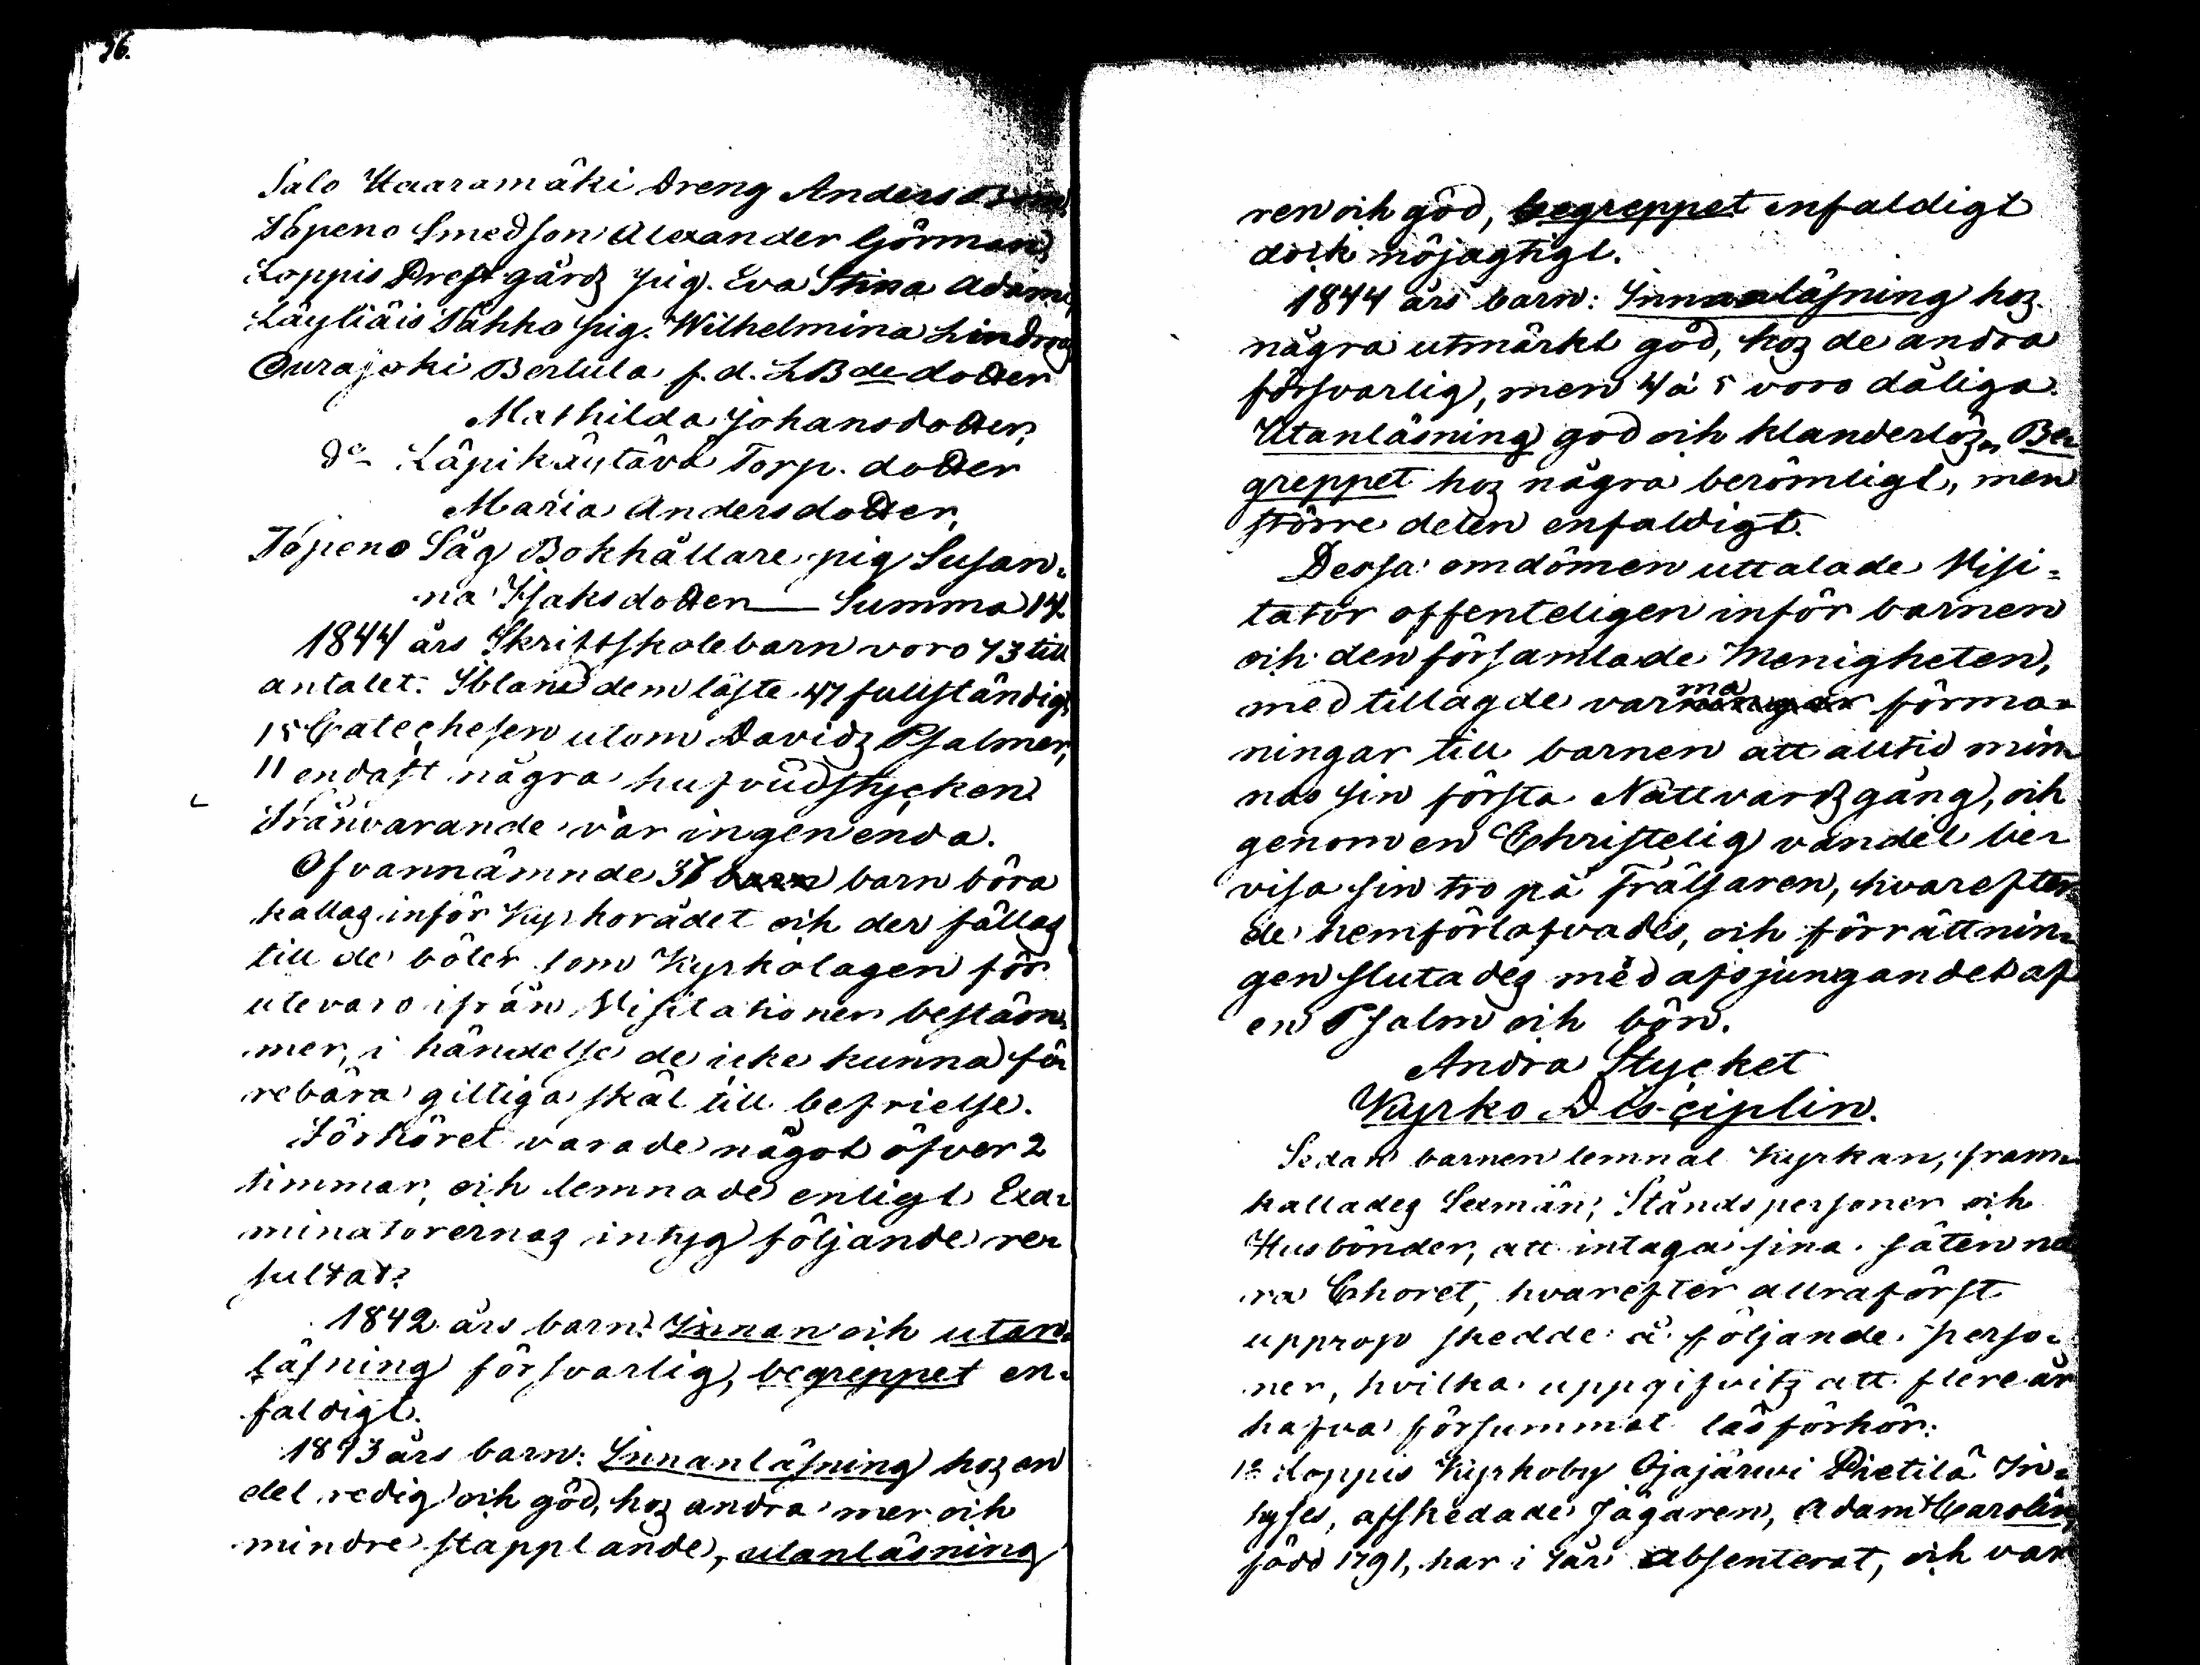 36.
Salo Haaramäki Dreng Anders
Topeno Smedson Alexander Görman,
Loppis Prestgårds pig. Eva Stina Adamd,
Läyliäis Vähko pig. Wilhelmina Lindroos
Ourajoki Bertula f.d. LBde dotter
Mathilda Johansdotter,
do Läpikäytävä Torp. dotter
Maria Andersdotter,
Topeno Såg Bokhållare pig Susan-
na Isaksdotter — Summa 14.
1844 års Skriftskolebarn voro 73 till
antalet. Ibland dem läste 47 fullständigt,
15 Catechesen utom Davids Psalmer,
11 endast några hufvudstycken.
Frånvarande var ingen enda.
Ofvannämnde 37 barn barn böra
kallas inför Kyrkorådet och der fällas
till de böter som Kyrkolagen för
utevaro ifrån Visitationer bestäm-
mer, i händelse de icke kunna fö-
rebära giltiga skäl till befrielse.
Förhöret varade något öfver 2
timmar, och lemnade enligt Exa-
minatorernas intyg följande re-
sultat:
1842 års barn: Innan och utan-
läsning försvarlig, begreppet en-
faldigt.
1843 års barn: Innanläsning hos en
del redig och god, hos andra mer och
mindre stapplande, utanläsning
ren och god, begreppet enfaldigt
dock nöjagtigt.
1844 års barn: Innanläsning hos
några utmärkt god, hos de andra
försvarlig, men 4 à 5 voro dåliga.
Utanläsning god och klanderlös, Be-
greppet hos några berömligt, men
större delen enfaldigt.
Dessa omdömen uttalade Visi-
tator offenteligen inför barnen
och den församlade Menigheten,
med tillagde varma förma-
ningar till barnen att alltid min-
nas sin första Nattvardsgång, och
genom en Christelig vandel be-
visa sin tro på Frälsaren, hvarefter
de hemförlofvades, och förrättnin-
gen slutades med afsjungandet af
en Psalm och bön.
Andra Stycket
Kyrko Disciplin.
Sedan barnen lemnat Kyrkan, fram-
kallades Sexmän, Ståndspersoner och
Husbönder, att intaga sina säten nä-
ra Choret, hvarefter allraförst
upprop skedde å följande perso-
ner, hvilka uppgifvits att flere år
hafva försummat läsförhör:
1o Loppis Kyrkoby Ojajärwi Pietilä In-
hyses, afskedade Jägaren, Adam Carolin,
född 1791, har i 7 år absenterat, och var